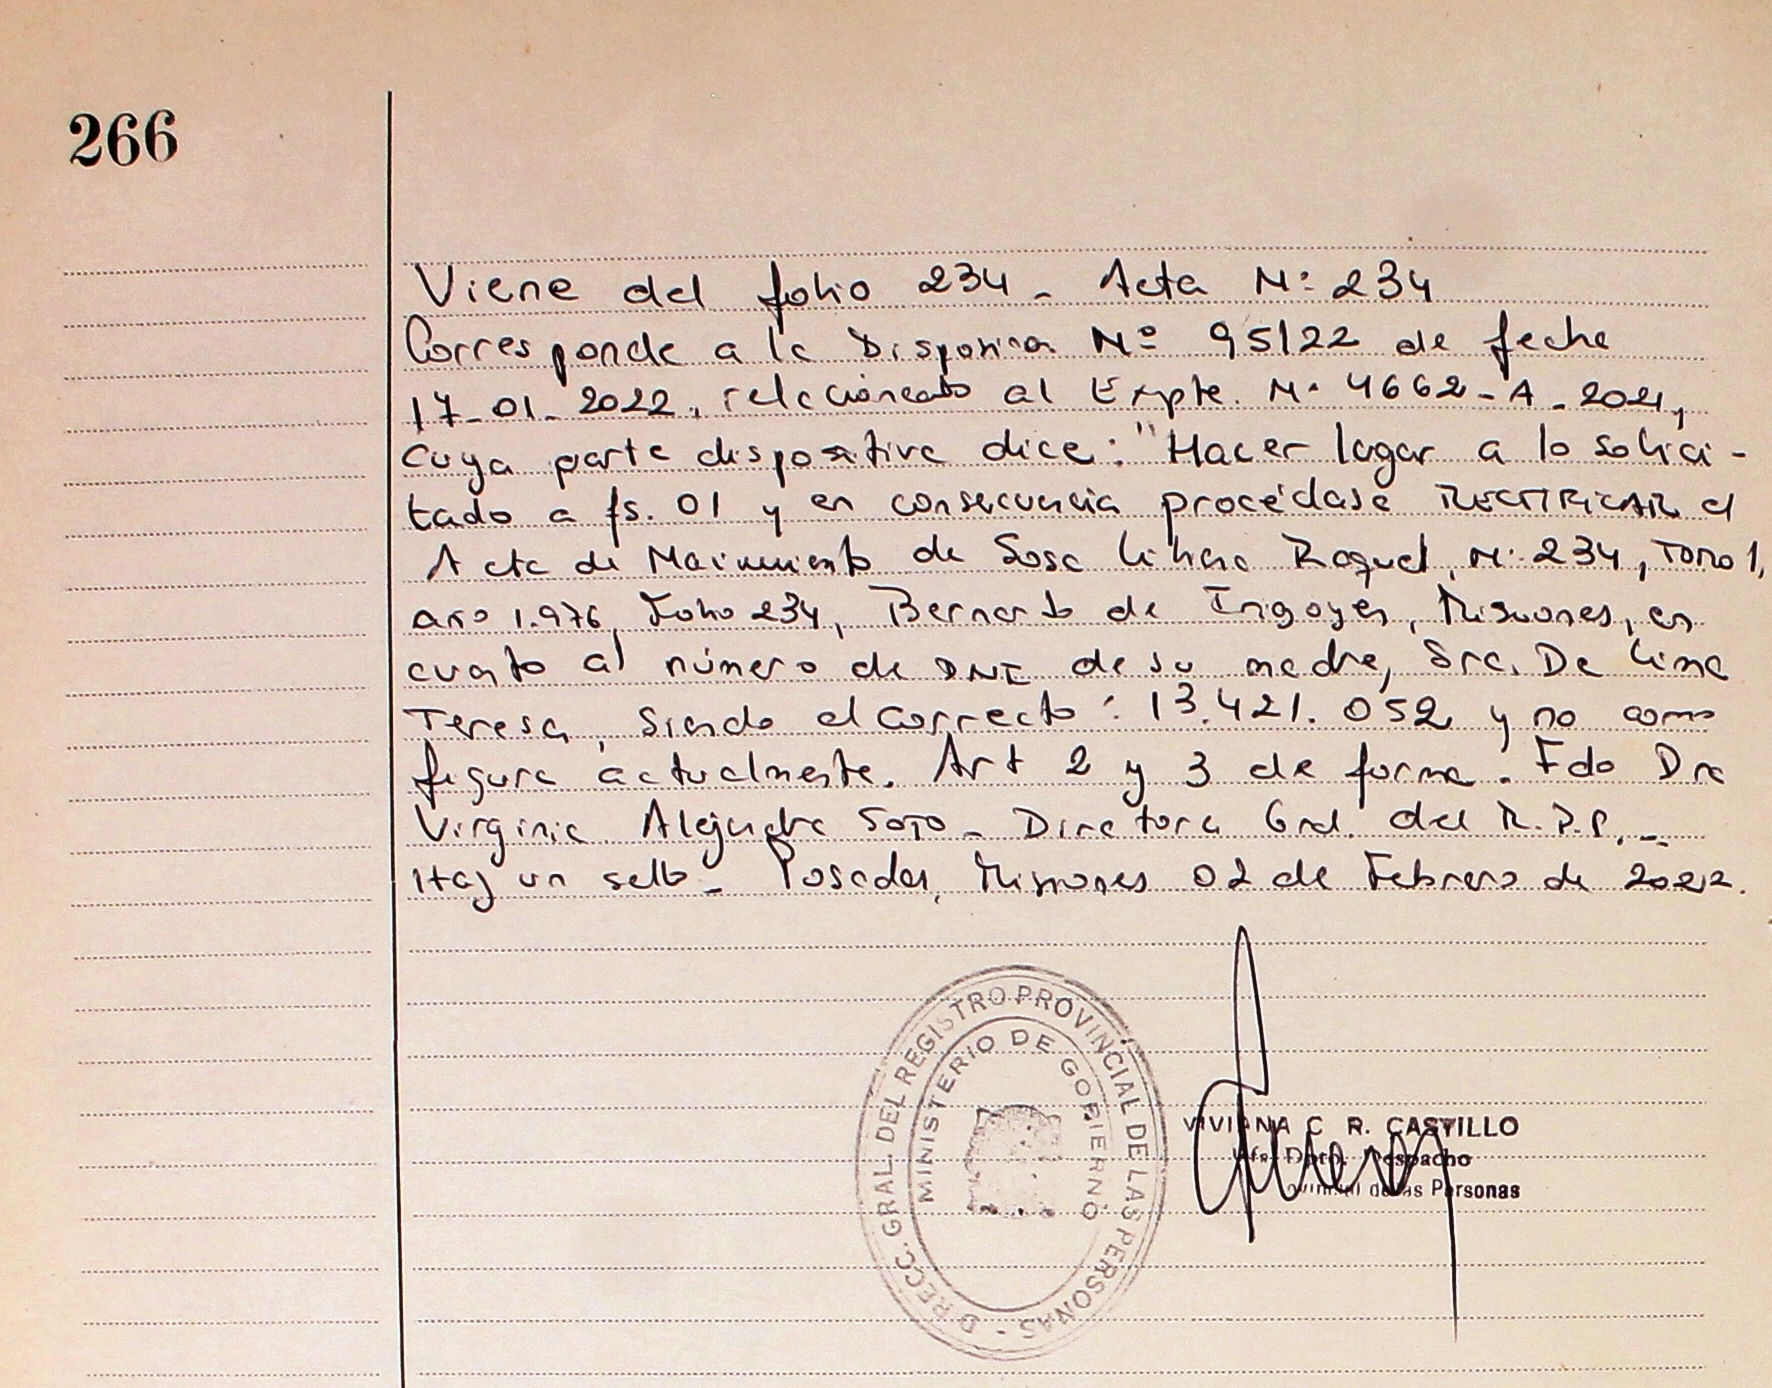 266
Viene del folio 234 - Acta Nº 234
Corresponde a la Disposicion Nº 95/22 de fecha
17-01-2022, relacionado al Expte. Nº 4662-A-2021,
cuya parte dispositiva dice: "Hacer lugar a lo solici-
tado a fs. 01 y en consecuencia procédase RECTIFICAR el
Acta de Nacimiento de Sosa Liliana Raquel, Nº 234, Tomo 1,
año 1.976, Folio 234, Bernardo de Irigoyen, Misiones, en
cuanto al número de DNI de su madre, Sra. De Lima
Teresa, siendo el correcto: 13.421.052 y no como
figura actualmente. Art 2 y 3 de forma. Fdo Dra
Virginia Alejandra Soto - Directora Gral. del R.P.P.-
Hay un sello - Posadas, Misiones 02 de Febrero de 2022.
DIRECC. GRAL. DEL REGISTRO PROVINCIAL DE LAS PERSONAS -
MINISTERIO DE GOBIERNO
VIVIANA C. R. CASTILLO
Dpto. Despacho
de las Personas